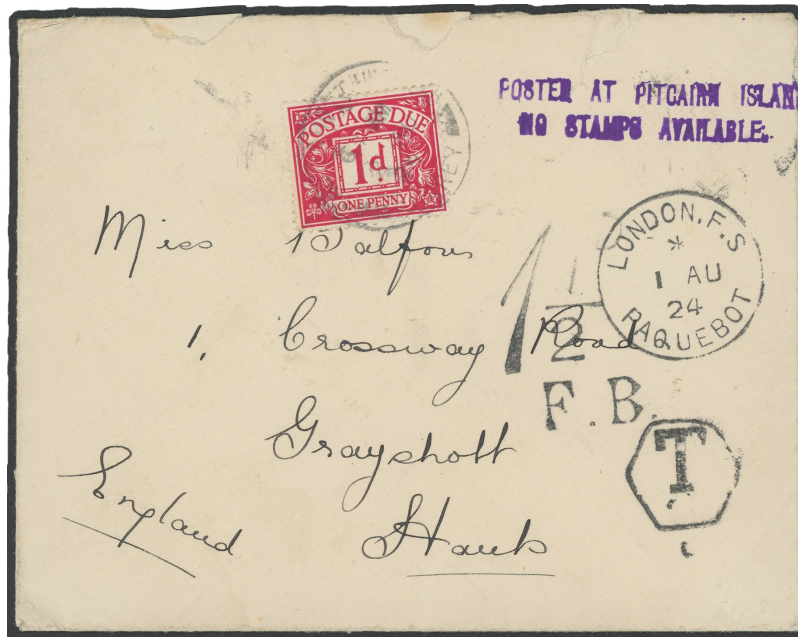 POSTED AT PITCAIRN ISLAN
NO STAMPS AVAILABLE.
POSTAGE DUE
1d.
ONE PENNY
LONDON. F.S
*
1 AU
24
PAQUEBOT
Miss Balfour
1, Crossway Road
Grayshott
Hants
England
1 1/2
F.B.
T